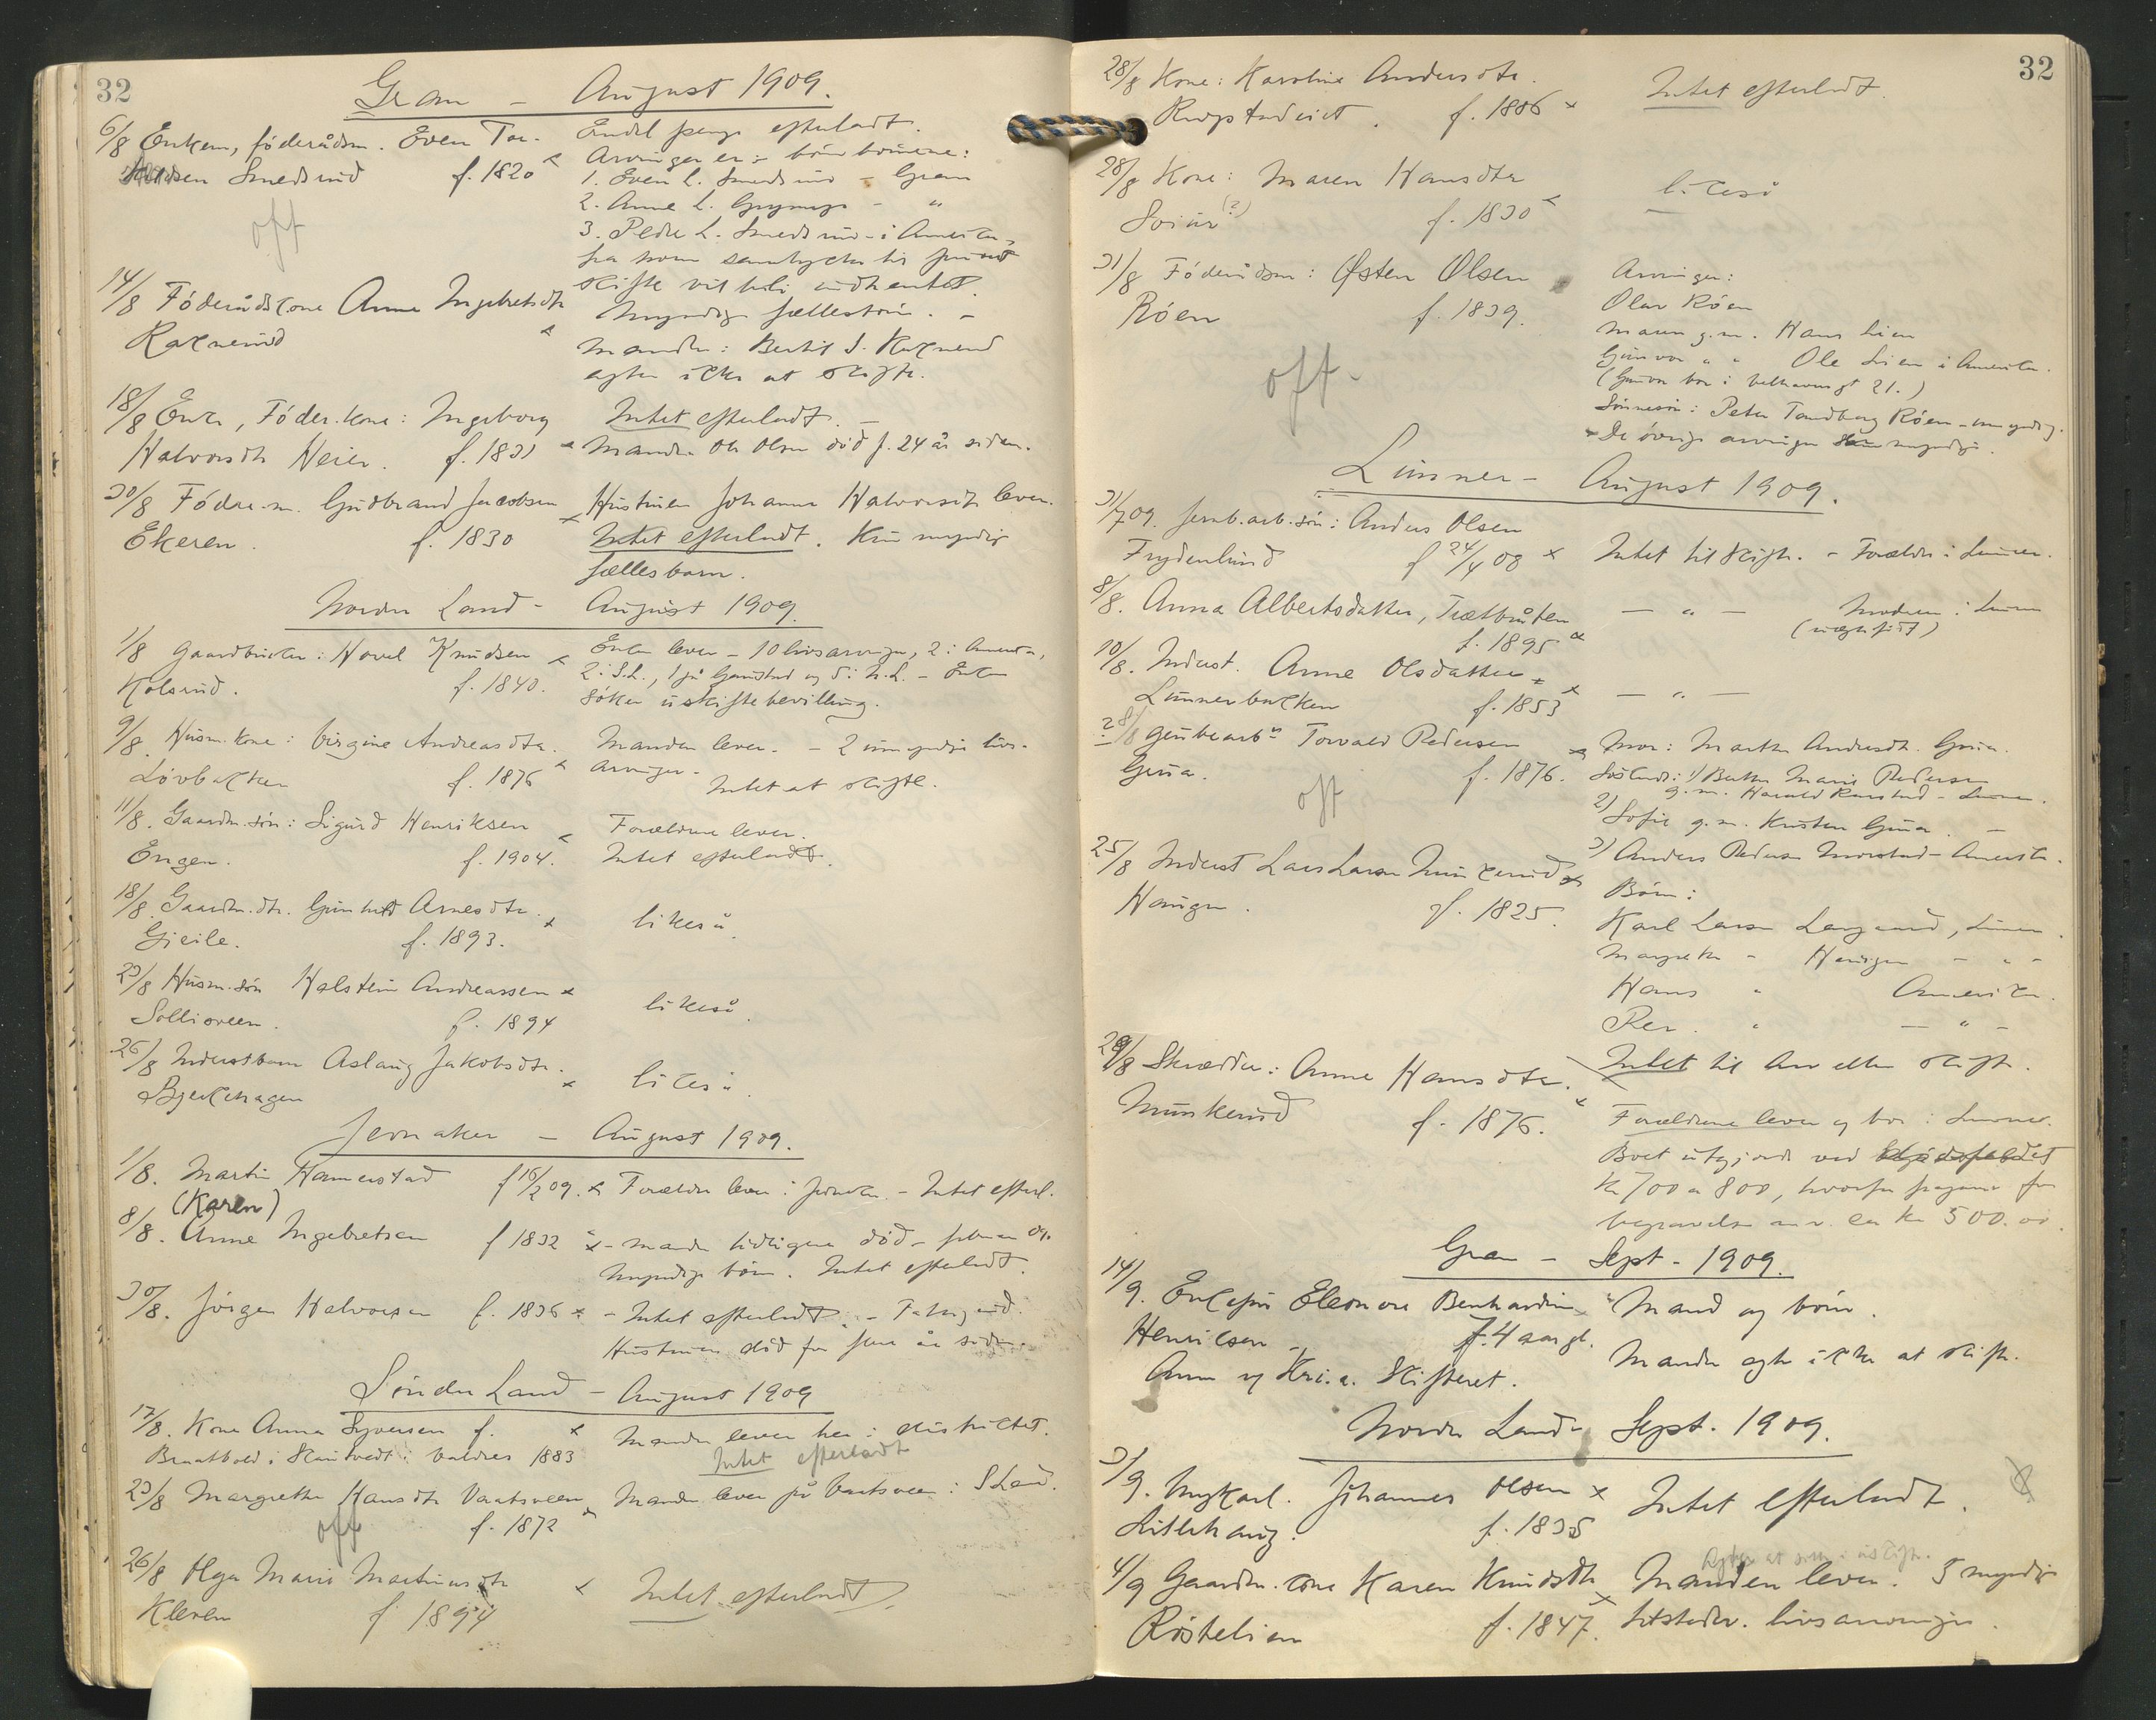 32
Gran - August 1909.
6/8 Enkem, föderådsm. Even Tor-
Smedsrud f. 1820 x
off
Endel penge efterladt.
Arvinger er: börnebörnene:
1. Even L. Smedsrud - Gran
2. Anne L. - "
3. Peder L. Smedsrud - i Amerika,
fra hvem samtycke til privat
skifte vil bli indhentet.
14/8 Föderådskone Anne Ingebretsdtr
Raknerud x
Myndige fællesbörn. -
Manden: Bertil I. Raknerud
agter icke at skifte.
18/8 Enke, Föder.kone: Ingeborg
Halvorsdtr Heier. f. 1831 x
Intet efterladt. -
Manden Ole Olsen död f. 24 år siden.
30/8 Föder.m. Gudbrand Jacobsen
Ekeren. f. 1830 x
Hustruen Johanne Halvorsdtr lever.
Intet efterladt. Kun myndig
fællesbarn.
Nordre Land - August 1909.
1/8 Gaardbruker: Hovel Knudsen x
Kolsrud. f. 1840.
Enken lever - 10 livsarvinger, 2 i Amerika,
2 i S.L., 1 på og 5 i N.L. - Enken
söker uskiftebevilling.
9/8. Husm.kone: Virgine Andreasdtr.
Lövbakken f. 1876 x
Manden lever. - 2 umyndige livs-
arvinger.
Intet at skifte.
11/8. Gaardm.sön: Sigurd Henriksen x
Engen. f. 1904.
Forældrene lever.
Intet efterladt.
18/8. Gaardm.dtr. Gunhild Arnesdtr.
Gjeile. f. 1893. x
likeså.
23/8 Husm.sön Halstein Andreassen x
Sollioveen. f. 1894
likeså.
26/8 Inderstbarn Aslaug Jakobsdtr.
Bjerkehagen x
likeså
Jevnaker - August 1909.
1/8. Martin Hamerstad f 16/2 09. x Forældre lever i Jevnaker. - Intet efterl.
(Karen)
8/8. Anne Ingebretsen f 1832 x - Manden tidligere död - februar 09.
Myndige börn. Intet efterladt.
30/8. Jörgen Halvorsen f. 1836 x - Intet efterladt. - Fattigund.
Hustruen död for flere år siden.
Söndre Land - August 1909
17/8. Kone Anna Syversen f. x
Braatvold i Skautvedt i Valdres 1883
Manden lever her i distriktet.
Intet efterladt
23/8 Margrethe Hansdtr Vaatsveen x
off f. 1872
Manden lever på Vaatsveen i S Land.
26/8 Olga Marie Martinusdtr x
Kleven f 1894
Intet efterladt.
32
28/8 Kone: Karoline Andersdtr.
f. 1886 x
Intet efterladt.
28/8 Kone: Maren Hansdtr
(?) f. 1830 x
likeså
31/8 Föderådsm: Østen Olsen
Röen f. 1839.
off-
Arvinger:
Olav Röen
Maren g.m. Hans Lien
Gunvor " " Ole Lien i Amerika.
Sönnesön: Peter Tandberg Röen - umyndig.
De övrige arvinger myndige.
Lunner - August 1909.
31/7 09. Jernb.arb.sön: Anders Olsen
Frydenlund f 24/4 08 x
Intet til skifte. - Forældre i Lunner.
8/8. Anna Albertsdatter, Trætbråten
f. 1895 x
- " - Moderen i Lunner
(uægte född)
10/8. Inderst. Anne Olsdatter
Lunnerbakken f. 1853 x
- " -
? 8/8 Grubearbr Torvald Pedersen x
Grua. f. 1876.
off
Mor: Marthe Andersdtr. Grua.
Söskende: 1) Berthe Marie Pedersen
g.m. Harald - Lunner.
2) Sofie g.m. Kristen Grua. -
3) Anders Pedersen - Amerika.
25/8 Inderst Lars Larsen Munkerud x
Haugen. f. 1825.
Börn:
Karl Larsen , Lunner.
Margrethe - Haugen - " -
Hans " Amerika.
Per. " - " -
29/8 Skrædder: Anne Hansdtr.
Munkerud f. 1876. x
Intet til Arv eller skifte.
Forældrene lever og bor i Lunner.
Boet utgjorde ved
kr 700 a 800, hvorfra fragaar for
begravelse m.v. ca kr 500.00.
Gran - Sept - 1909.
14/9. Eleonora Benhardine x
Henriksen - f. 4 aar gl.
Anm. og Kri.a. Skifteret.
Mand og börn.
Manden agter icke at skifte.
Nordre Land - Sept. 1909.
3/9. Ungkarl. Johannes Olsen x
Litlehaug. f. 1835
Intet efterladt.
4/9 Gaardm.kone Karen Knudsdtr
Röstelien f. 1847. x
Agter at sitte i uskifte.
Manden lever. 5 myndige
tilstedev. livsarvinger.